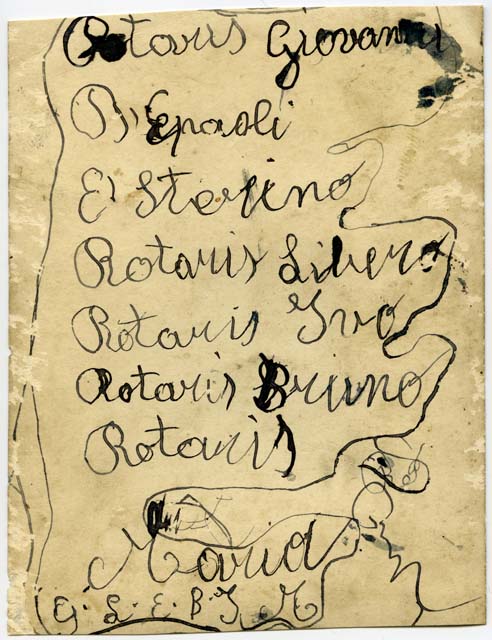 Rotaris Giovanni
Rotaris Libero
Rotaris Ivo
Rotaris Bruno
Rotaris
Maria
G. L. E. B. I. M